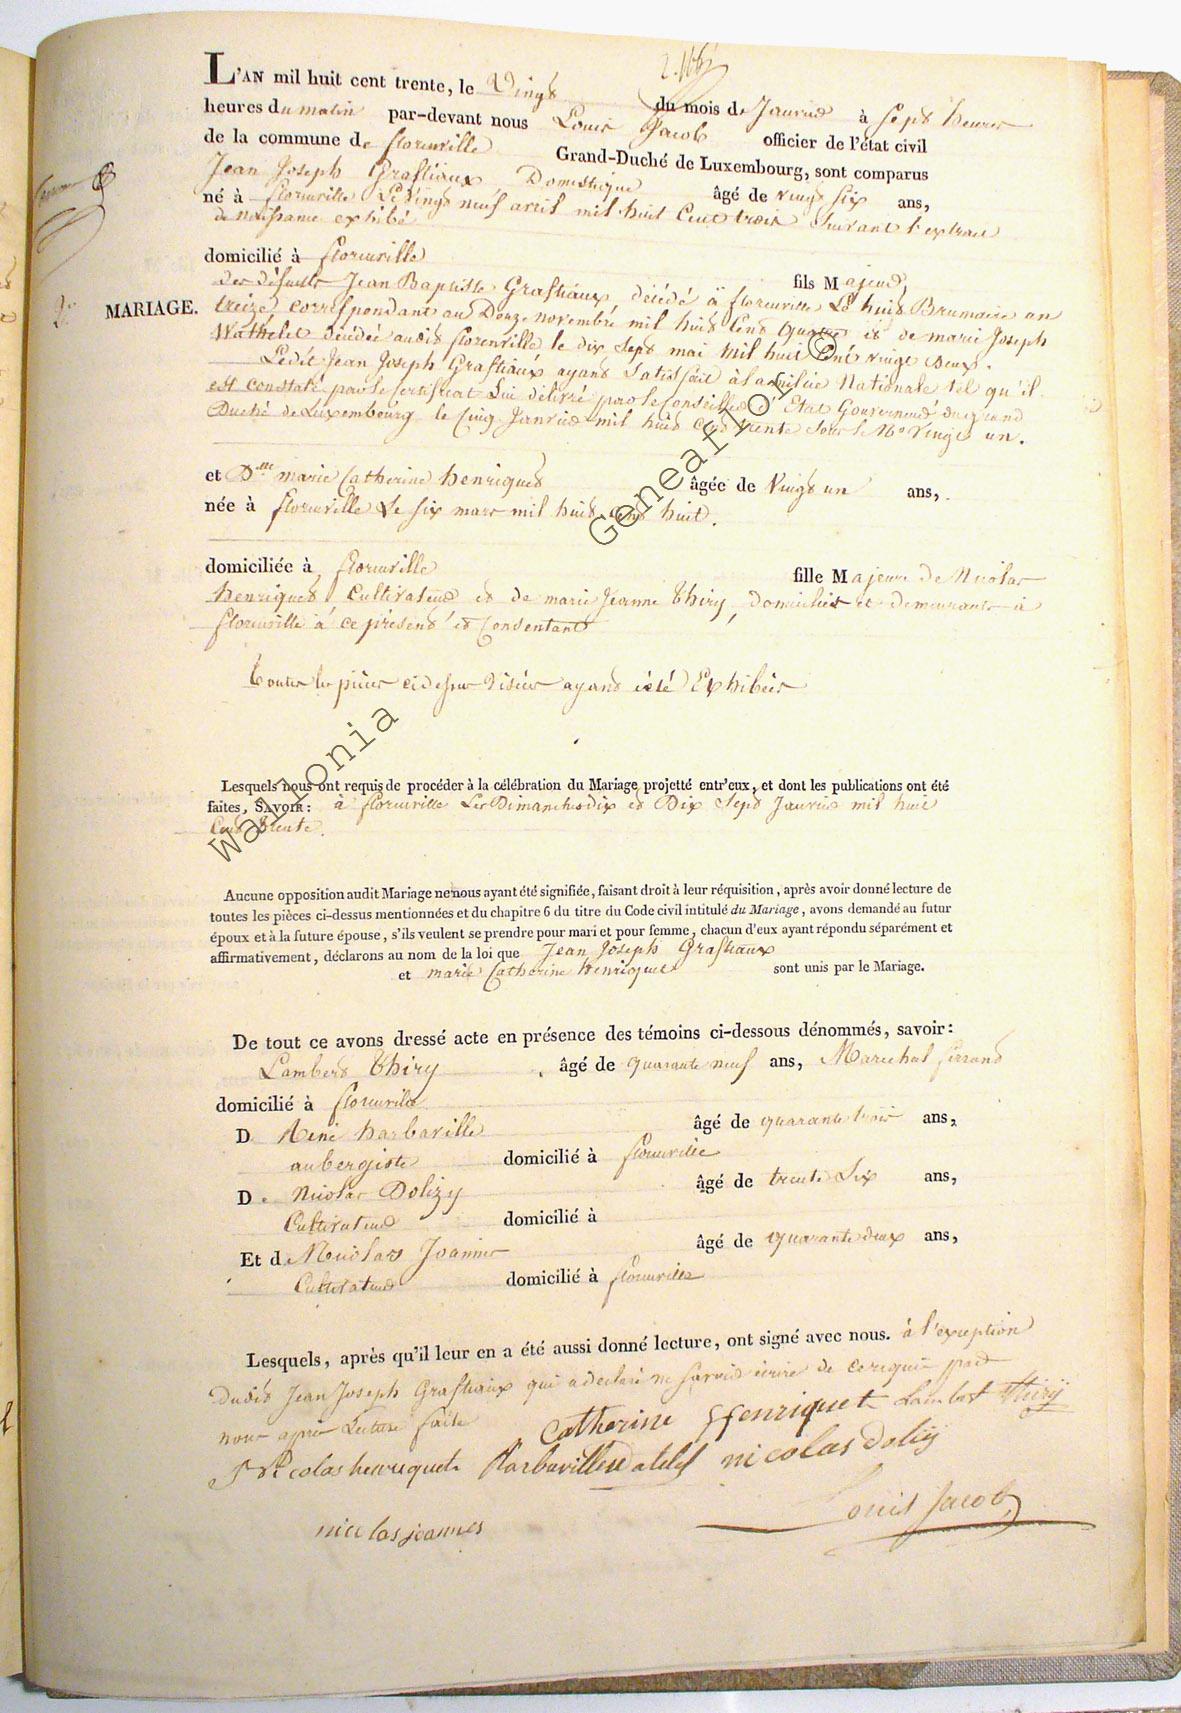 L'AN mil huit cent trente, le Vingt du mois de Janvier à sept heures
heures du matin par-devant nous Louis Jacob officier de l'état civil
de la commune de florenville Grand-Duché de Luxembourg, sont comparus
Jean Joseph Graftiaux Domestique âgé de vingt six ans,
né à florenville Le Vingt neuf avril mil huit Cent trois suivant l'extrait
de naissance exhibé
domicilié à florenville fils Majeur,
des défunts Jean Baptiste Graftiaux, décédé à florenville Le huit Brumaire an
MARIAGE. treize correspondant au Douze novembre mil huit Cent quatre et de marie Joseph
Wathelet décédée audit florenville le dix sept mai mil huit Cent vingt deux.
Ledit Jean Joseph Graftiaux ayant satisfait à la milice Nationale tel qu'il
est constaté par le certificat Lui délivré par le Conseiller d'Etat Gouverneur du grand
Duché de Luxembourg le Cinq Janvier mil huit cent trente sous le No Vingt un.
et Dlle marie Catherine henriquet âgée de Vingt un ans,
née à florenville Le six mars mil huit cent huit.
domiciliée à florenville fille Majeure de Nicolas
henriquet Cultivateur et de marie Jeanne Thiry, domiciliés et demeurants à
florenville à ce présent et Consentant
Toutes les pièces ci dessus visées ayant été Exhibées
Lesquels nous ont requis de procéder à la célébration du Mariage projetté entr'eux, et dont les publications ont été
faites, SAVOIR: à florenville Les Dimanches dix et Dix sept Janvier mil huit
Cent trente.
Aucune opposition audit Mariage ne nous ayant été signifiée, faisant droit à leur réquisition, après avoir donné lecture de
toutes les pièces ci-dessus mentionnées et du chapitre 6 du titre du Code civil intitulé du Mariage, avons demandé au futur
époux et à la future épouse, s'ils veulent se prendre pour mari et pour femme, chacun d'eux ayant répondu séparément et
affirmativement, déclarons au nom de la loi que Jean Joseph Graftiaux
et marie Catherine henriquet sont unis par le Mariage.
De tout ce avons dressé acte en présence des témoins ci-dessous dénommés, savoir:
Lambert Thiry âgé de quarante neuf ans, Marechal ferrand
domicilié à florenville
D René harbaville âgé de quarante trois ans,
aubergiste domicilié à florenville
De Nicolas Dolizy âgé de trente six ans,
Cultivateur domicilié à
Et de Nicolas Joannes âgé de quarante deux ans,
Cultivateur domicilié à florenville
Lesquels, après qu'il leur en a été aussi donné lecture, ont signé avec nous. à l'exception
dudit Jean Joseph Graftiaux qui a déclaré ne savoir écrire de ce requis par
nous après Lecture faite
Catherine henriquet Lambert Thiry
Nicolas henriquet nicolas doliy
Louis Jacob
nicolas joannes
Wallonia Geneaflor ©